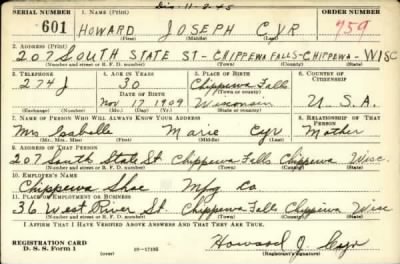 Dis. 11-2-45
SERIAL NUMBER 1. NAME (Print) ORDER NUMBER
601 HOWARD JOSEPH CYR 959
(First) (Middle) (Last)
2. ADDRESS (Print)
207 SOUTH STATE ST - CHIPPEWA FALLS - CHIPPEWA - WISC
(Number and street or R. F. D. number) (Town) (County) (State)
3. TELEPHONE 4. AGE IN YEARS 5. PLACE OF BIRTH 6. COUNTRY OF CITIZENSHIP
274 J 30 Chippewa Falls
DATE OF BIRTH (Town or county)
Nov 17 1909 Wisconsin U. S. A.
(Exchange) (Number) (Mo.) (Day) (Yr.) (State or country)
7. NAME OF PERSON WHO WILL ALWAYS KNOW YOUR ADDRESS 8. RELATIONSHIP OF THAT PERSON
Mrs Isabelle Marie Cyr Mother
(Mr., Mrs., Miss) (First) (Middle) (Last)
9. ADDRESS OF THAT PERSON
207 South State St. Chippewa Falls Chippewa Wisc.
(Number and street or R. F. D. number) (Town) (County) (State)
10. EMPLOYER'S NAME
Chippewa Shoe Mfg Co
11. PLACE OF EMPLOYMENT OR BUSINESS
36 West River St. Chippewa Falls Chippewa Wisc
(Number and street or R. F. D. number) (Town) (County) (State)
I AFFIRM THAT I HAVE VERIFIED ABOVE ANSWERS AND THAT THEY ARE TRUE.
REGISTRATION CARD
D. S. S. Form 1 (over) 16-17105 Howard J. Cyr
(Registrant's signature)